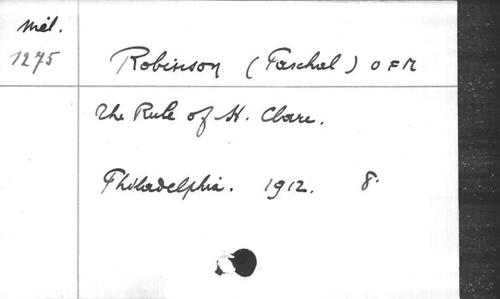 Mél.
1275
Robinson (Paschal) OFM
The Rule of St. Clare.
Philadelphia. 1912. 8°